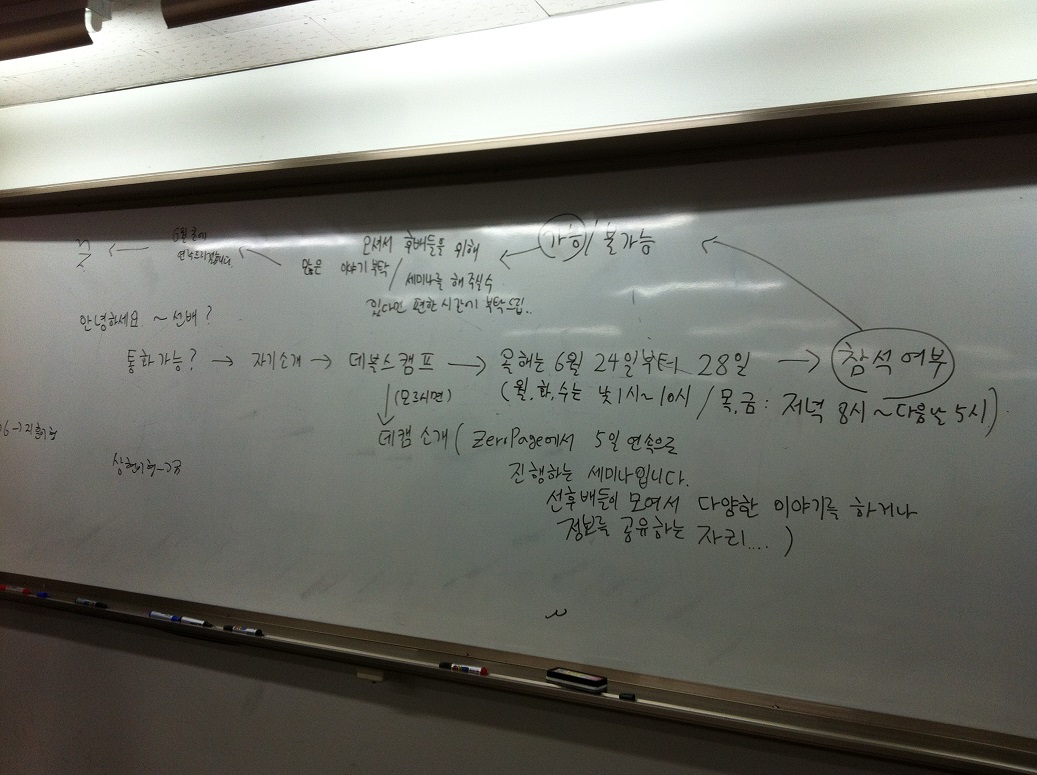 가능 / 불가능
오셔서 후배들을 위해
많은 이야기 부탁 / 세미나를 해 주실수
있다면 편한 시간에 부탁드림..
6월 초에
연락드리겠습니다.
끝
안녕하세요. ~ 선배?
통화 가능? → 자기소개 → 데블스캠프 → 올해는 6월 24일부터 28일 → 참석여부
(모르시면)
(월,화,수는 낮1시~10시 / 목,금: 저녁 8시~다음날 5시)
데캠 소개 ( ZeroPage에서 5일 연속으로
진행하는 세미나입니다.
선후배들이 모여서 다양한 이야기를 하거나
정보를 공유하는 자리.... )